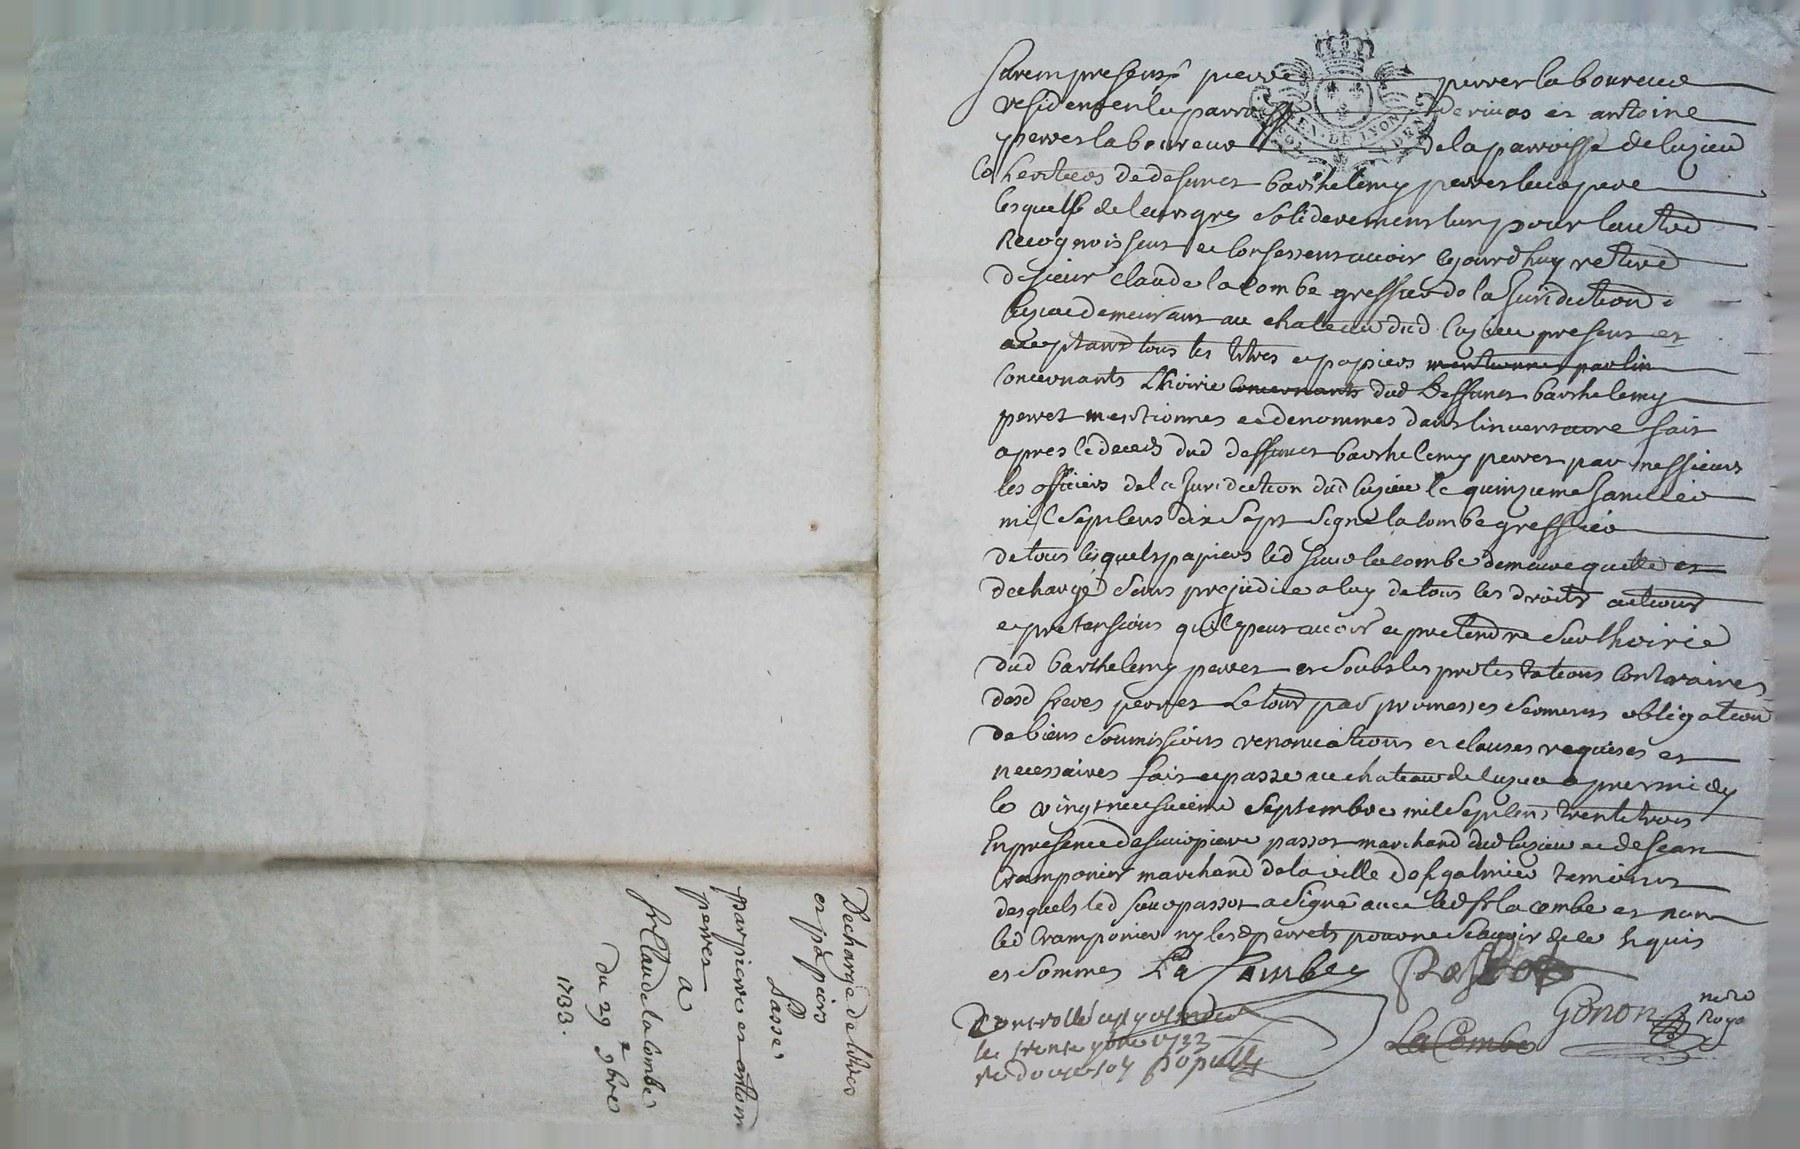 Furent presents pierre perret laboureur
resident en la parroisse de rivas et antoine
perret laboureur de la parroisse de luzieu
coheritiers de defunct barthelemy perret leur pere
lesquels de leurs gres solidairement lun pour lautre
Recognoissent et confessent avoir cejourdhuy retiré
de sieur claude lacombe greffier de la Juridiction de
luzieu demeurant au chateau dud luzieu present et
acceptant tous les titres et papiers mentionnes par lin
concernants Lhoirie concernants dud deffunct barthelemy
perret mentionnes et denommes dans linventaire fait
apres le deceds dud deffunct barthelemy perret par messieurs
les officiers de la Juridiction dud luzieu le quinzieme Janvier
mil sept cens dix sept signé lacombe greffier
de tous lesquels papiers led sieur lacombe demeure quitte et
dechargé sans prejudice a luy de tous les droits actions
et pretensions quil peut avoir et pretendre sur lhoirie
dud barthelemy perret et soubs les protestations contraires
desd freres perret Le tout par promesses serments obligation
de biens soumissions renonciations et clauses requises et
necessaires fait et passe au chateau de luzieu apres midy
le vingt neufvieme septembre mil sept cens trente trois
En presence de sieur pierre passot marchand dud luzieu et de Jean
Cramponier marchand de la ville de st galmier temoins
desquels led sieur passot a signé avec led sr lacombe et non
led Cramponier ny lesd perrets pour ne scavoir de ce Enquis
et sommes La Combe Passot
Gonon
no.re Roya
La Combe
Controllé
le trente 1733
Decharge de titres
et papiers
Passée
par pierre et antoine
perret
a
sr Claude lacombe
du 29e 7bre
1733.